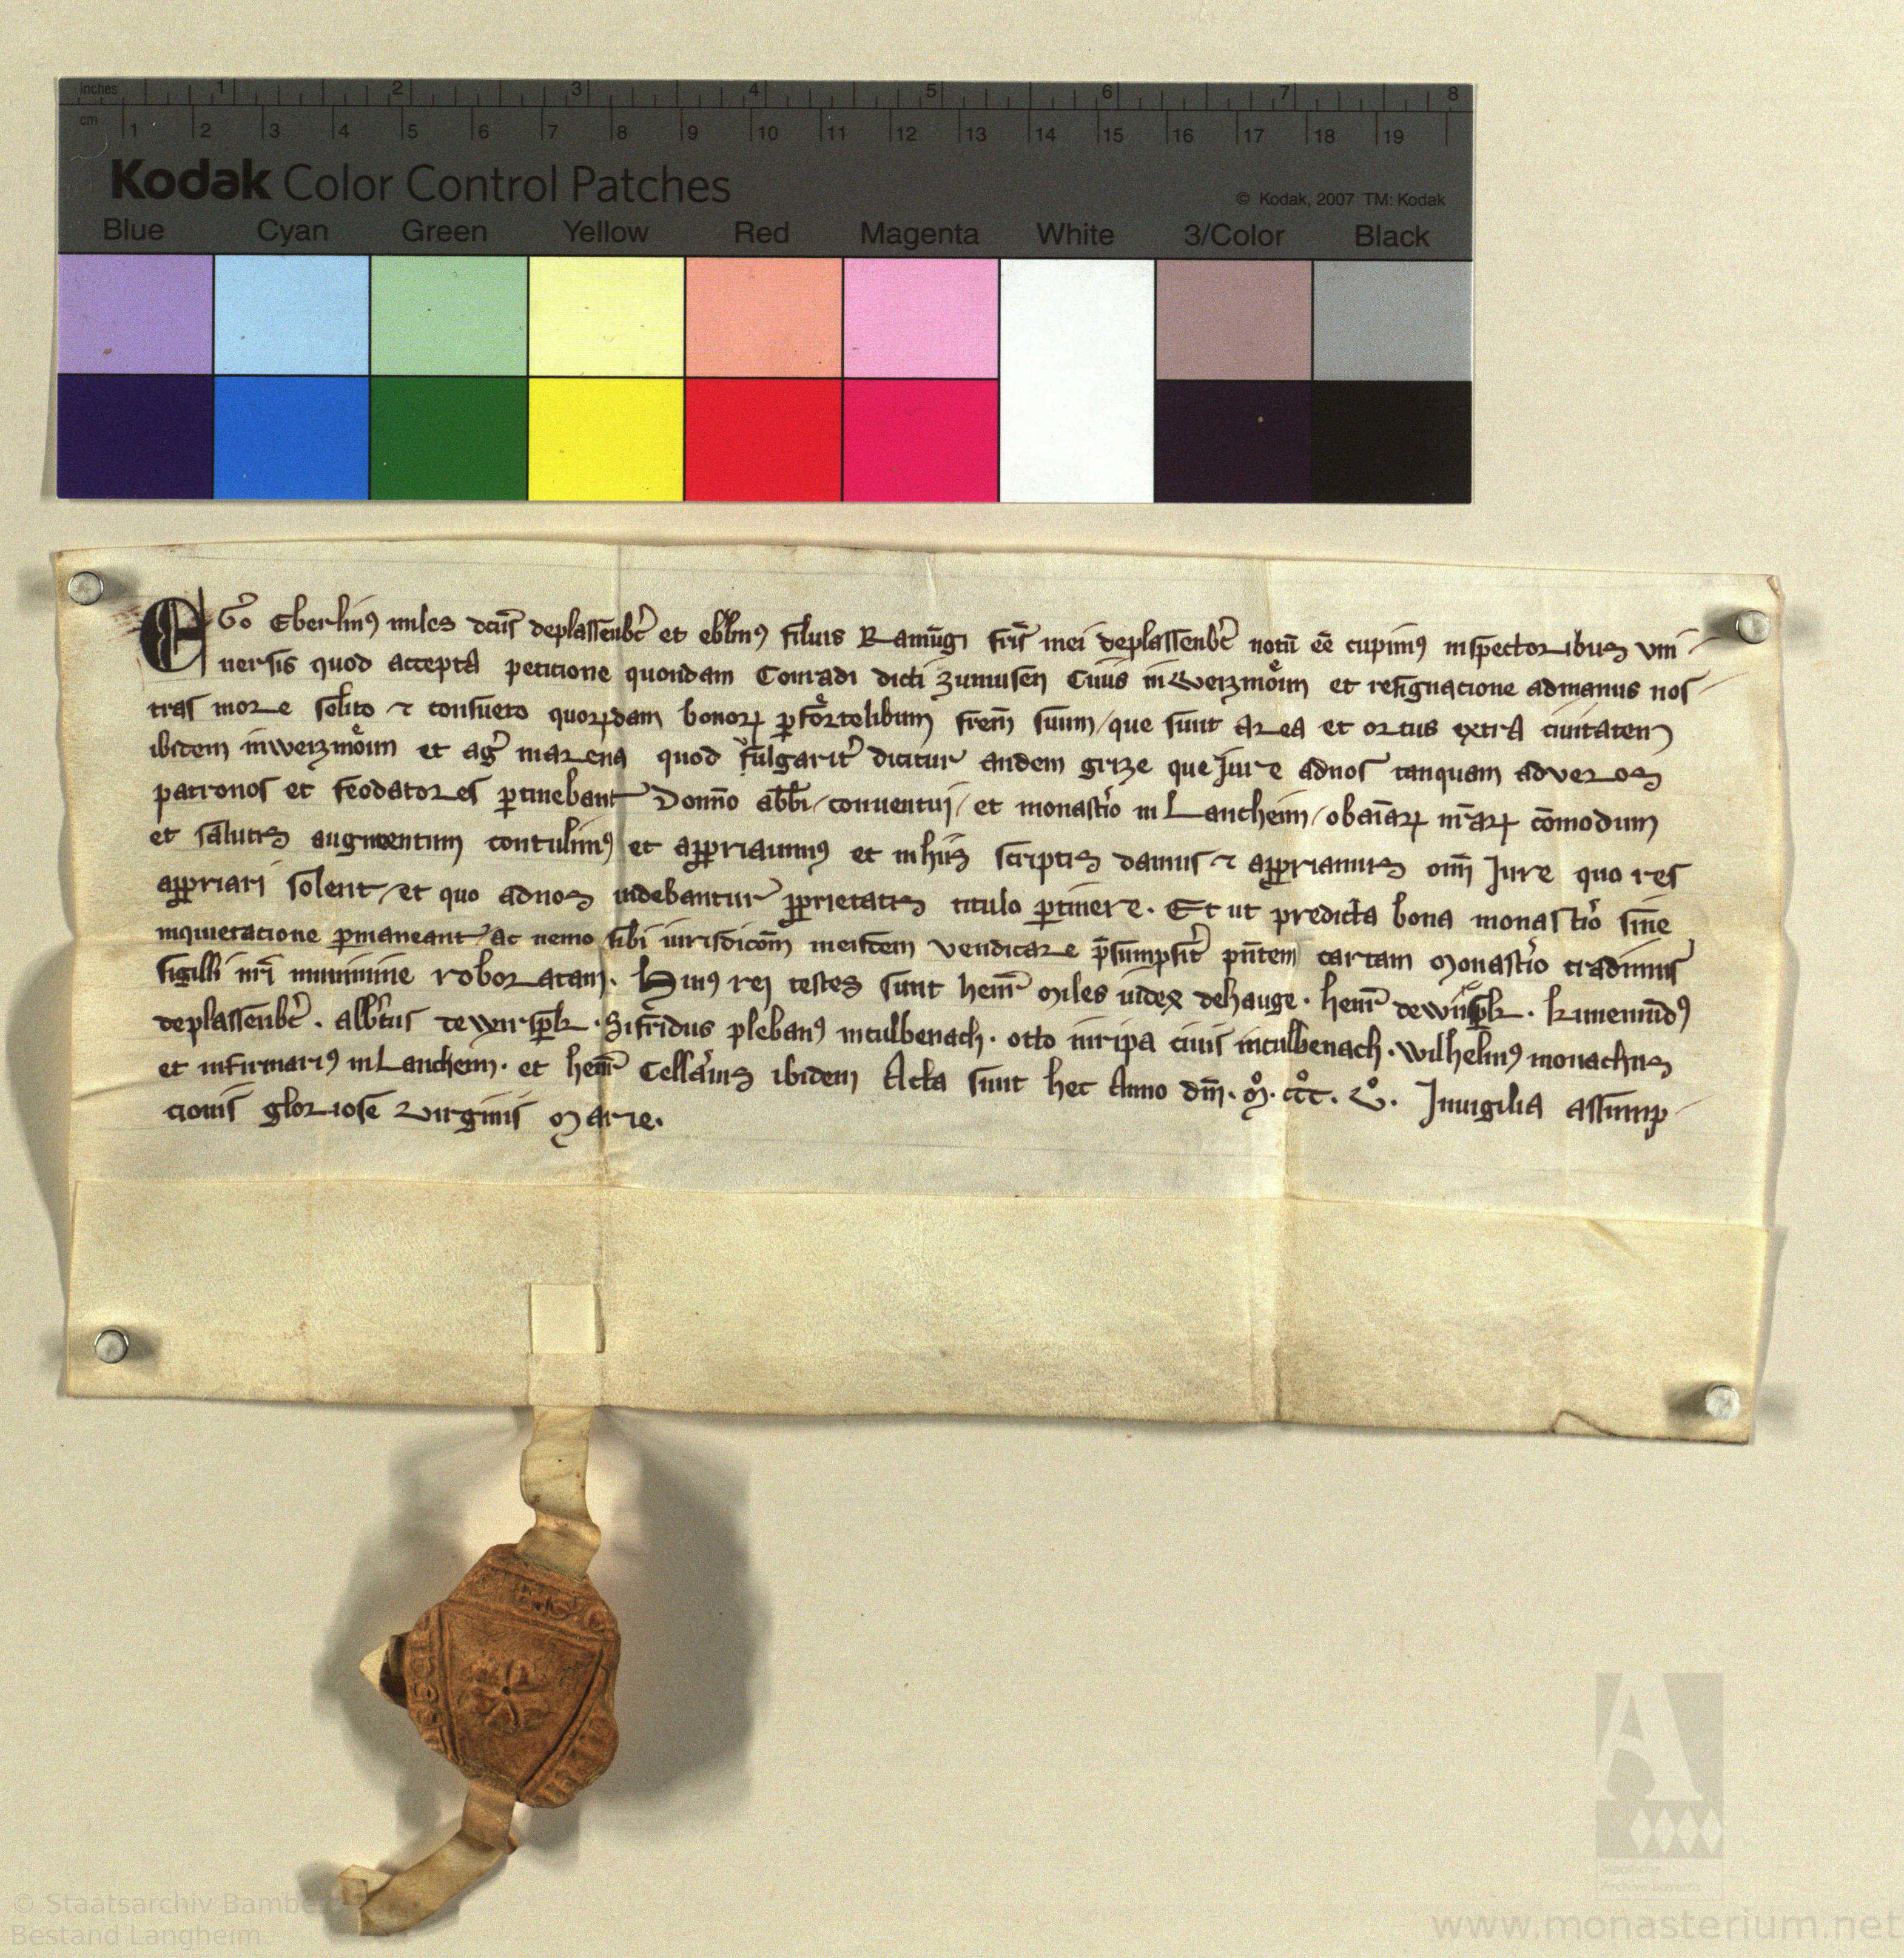 inches 1 2 3 4 5 6 7 8
cm 1 2 3 4 5 6 7 8 9 10 11 12 13 14 15 16 17 18 19
Kodak Color Control Patches
© Kodak, 2007 TM: Kodak
Blue Cyan Green Yellow Red Magenta White 3/Color Black
EGo Eberlinꝰ miles dc̄us deplassenb̄c et eblinꝰ filius Ramūgi fr̄is mei deplassenb̄c notū eē cupimꝰ inspectoribus vni
uersis quod accepta peticione quondam Conradi dicti zumusen Ciuis inweizmoͤin et resignacione admanus nos
tras more solito ⁊ consueto quorꝝdam bonorꝝ ꝑ foͤrtelibum frem̄ suum / que sunt area et ortus extra ciuitatem
ibidem inweizmoͤin et ag̉ marcna quod fulgarit̉ dicitur andem grize que Jure adnos tanquam adveros
patronos et feodatores ꝑtinebant Domn̄o abb̄i / conuentuj / et monast̉io in Lancheim / obaīarꝝ nr̄arꝝ cōmodum
et salutis augmentum contulimꝰ et aꝓpriauimꝰ et inhiis scriptis damus ⁊ aꝓpriamus om̄i Jure quo res
aꝓpriari solent / et quo adnos uidebantur ꝓprietatis titulo ꝑtinere. Et ut predicta bona monast̉io sine
inquietacione ꝑmaneant / ac nemo sibi iurisdicōm̄ ineisdem vendicare p̄sumpsit̉ pn̄tem cartam monast̉io tradimus
sigilli nr̄i munimine roboratam. Huiꝰ rej testes sunt heinr̄ miles iudex dehauge. heinr̄ dewirsꝑk. kunemūdꝰ
deplassenb̄c. alb̉tus dewirsꝑk. Sifridus plebanꝰ inculbenach. otto inripa ciuis inculbenach. wilhelmꝰ monachus
et infirmariꝰ inLancheim. et heinr̄ Cellar̉ius ibidem Acta sunt hec Anno dm̄. mͦ. cccͦ. vͦ. Jnuigilia assump
cionis gloriose virginis marie.
© Staatsarchiv Bamberg
Bestand Langheim
www.monasterium.net